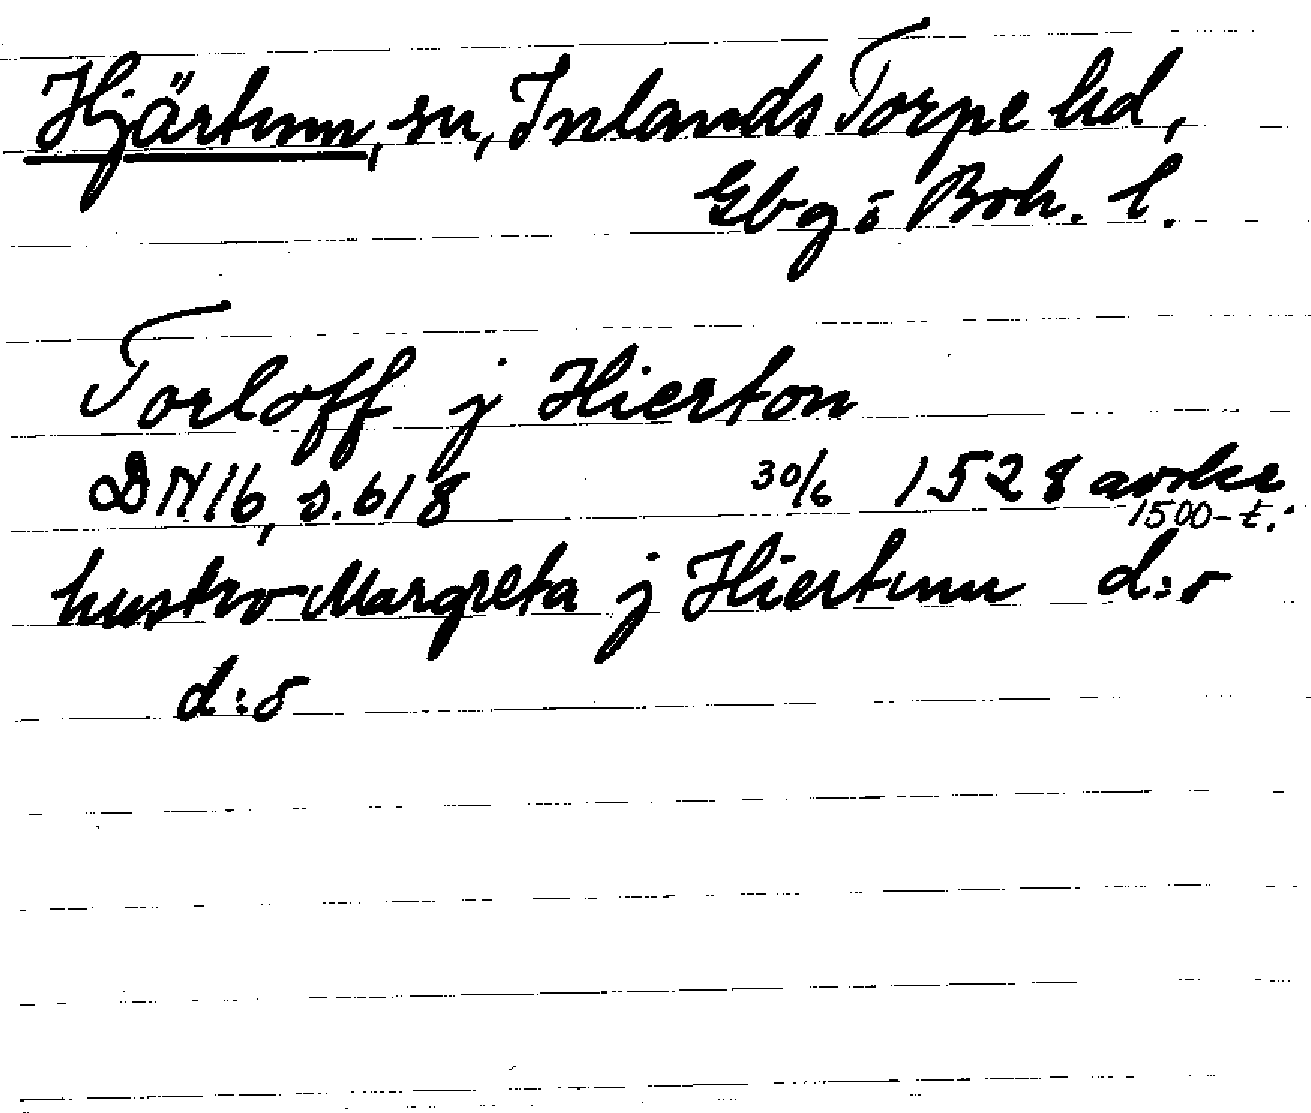 Hjärtum, sn, Inlands Torpe hd,
Gbg o Boh. l.
Torloff j Hierton
DN 16, s. 618 30/6 1528 avskr
1500-t.
hustro Margreta j Hiertunn d:o
d:o